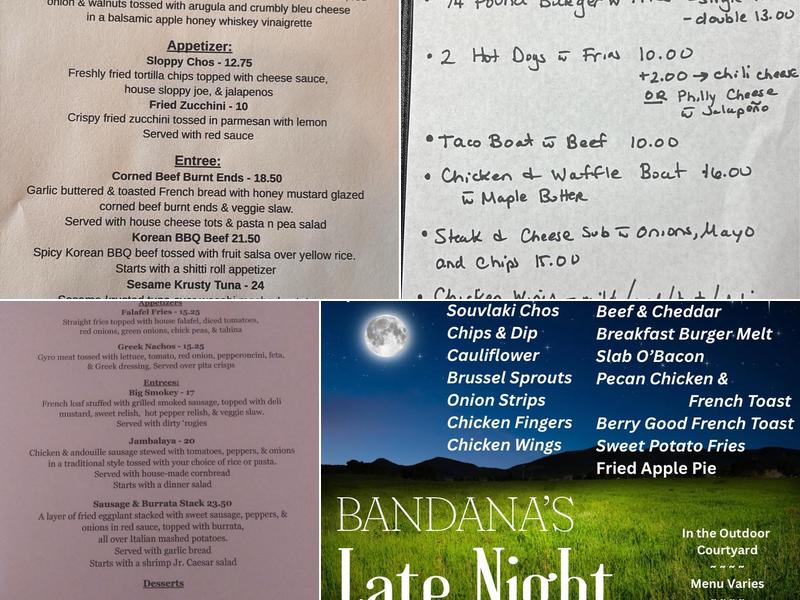 onion & walnuts tossed with arugula and crumbly bleu cheese
in a balsamic apple honey whiskey vinaigrette
Appetizer:
Sloppy Chos - 12.75
Freshly fried tortilla chips topped with cheese sauce,
house sloppy joe, & jalapenos
Fried Zucchini - 10
Crispy fried zucchini tossed in parmesan with lemon
Served with red sauce
Entree:
Corned Beef Burnt Ends - 18.50
Garlic buttered & toasted French bread with honey mustard glazed
corned beef burnt ends & veggie slaw.
Served with house cheese tots & pasta n pea salad
Korean BBQ Beef 21.50
Spicy Korean BBQ beef tossed with fruit salsa over yellow rice.
Starts with a shitti roll appetizer
Sesame Krusty Tuna - 24
- double 13.00
• 2 Hot Dogs w Fries 10.00
+2.00 → chili cheese
OR Philly Cheese
w Jalapeño
• Taco Boat w Beef 10.00
• Chicken & Waffle Boat 16.00
w Maple Butter
• Steak & Cheese Sub w Onions, Mayo
and Chips 15.00
Appetizers
Falafel Fries - 15.25
Straight fries topped with house falafel, diced tomatoes,
red onions, green onions, chick peas, & tahina
Greek Nachos - 15.25
Gyro meat tossed with lettuce, tomato, red onion, pepperoncini, feta,
& Greek dressing. Served over pita crisps
Entrees:
Big Smokey - 17
French loaf stuffed with grilled smoked sausage, topped with deli
mustard, sweet relish, hot pepper relish, & veggie slaw.
Served with dirty 'rogies
Jambalaya - 20
Chicken & andouille sausage stewed with tomatoes, peppers, & onions
in a traditional style tossed with your choice of rice or pasta.
Served with house-made cornbread
Starts with a dinner salad
Sausage & Burrata Stack 23.50
A layer of fried eggplant stacked with sweet sausage, peppers, &
onions in red sauce, topped with burrata,
all over Italian mashed potatoes.
Served with garlic bread
Starts with a shrimp Jr. Caesar salad
Desserts
Souvlaki Chos
Chips & Dip
Cauliflower
Brussel Sprouts
Onion Strips
Chicken Fingers
Chicken Wings
Beef & Cheddar
Breakfast Burger Melt
Slab O'Bacon
Pecan Chicken &
French Toast
Berry Good French Toast
Sweet Potato Fries
Fried Apple Pie
BANDANA'S
Late Night
In the Outdoor
Courtyard
~ ~ ~ ~
Menu Varies